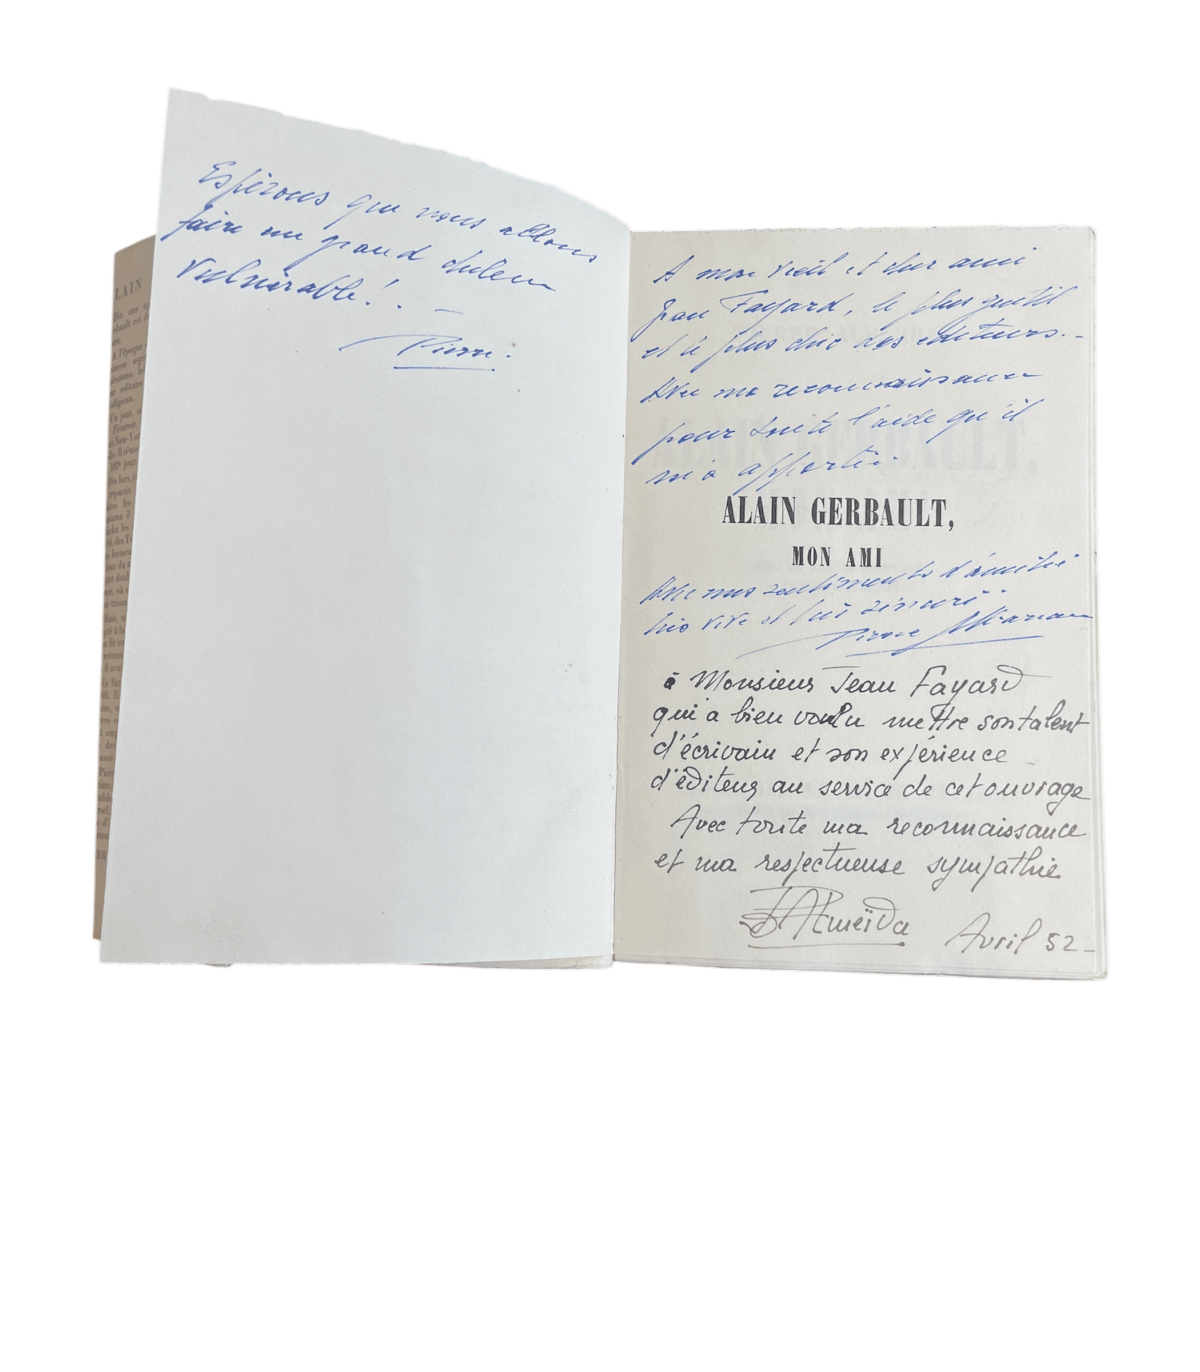 Espérons que nous allons
faire un grand
Vulnérable! . –
Pierre.
A mon vieil et cher ami
Jean Fayard, le plus gentil
et le plus chic des éditeurs. -
Avec ma reconnaissance
pour toute l'aide qu'il
m'a apportée
ALAIN GERBAULT,
MON AMI
Avec mes sentiments d'amitié
très vive et très sincère.
Pierre
à Monsieur Jean Fayard
qui a bien voulu mettre son talent
d'écrivain et son expérience
d'éditeur au service de cet ouvrage
Avec toute ma reconnaissance
et ma respectueuse sympathie
Almeïda
Avril 52 -